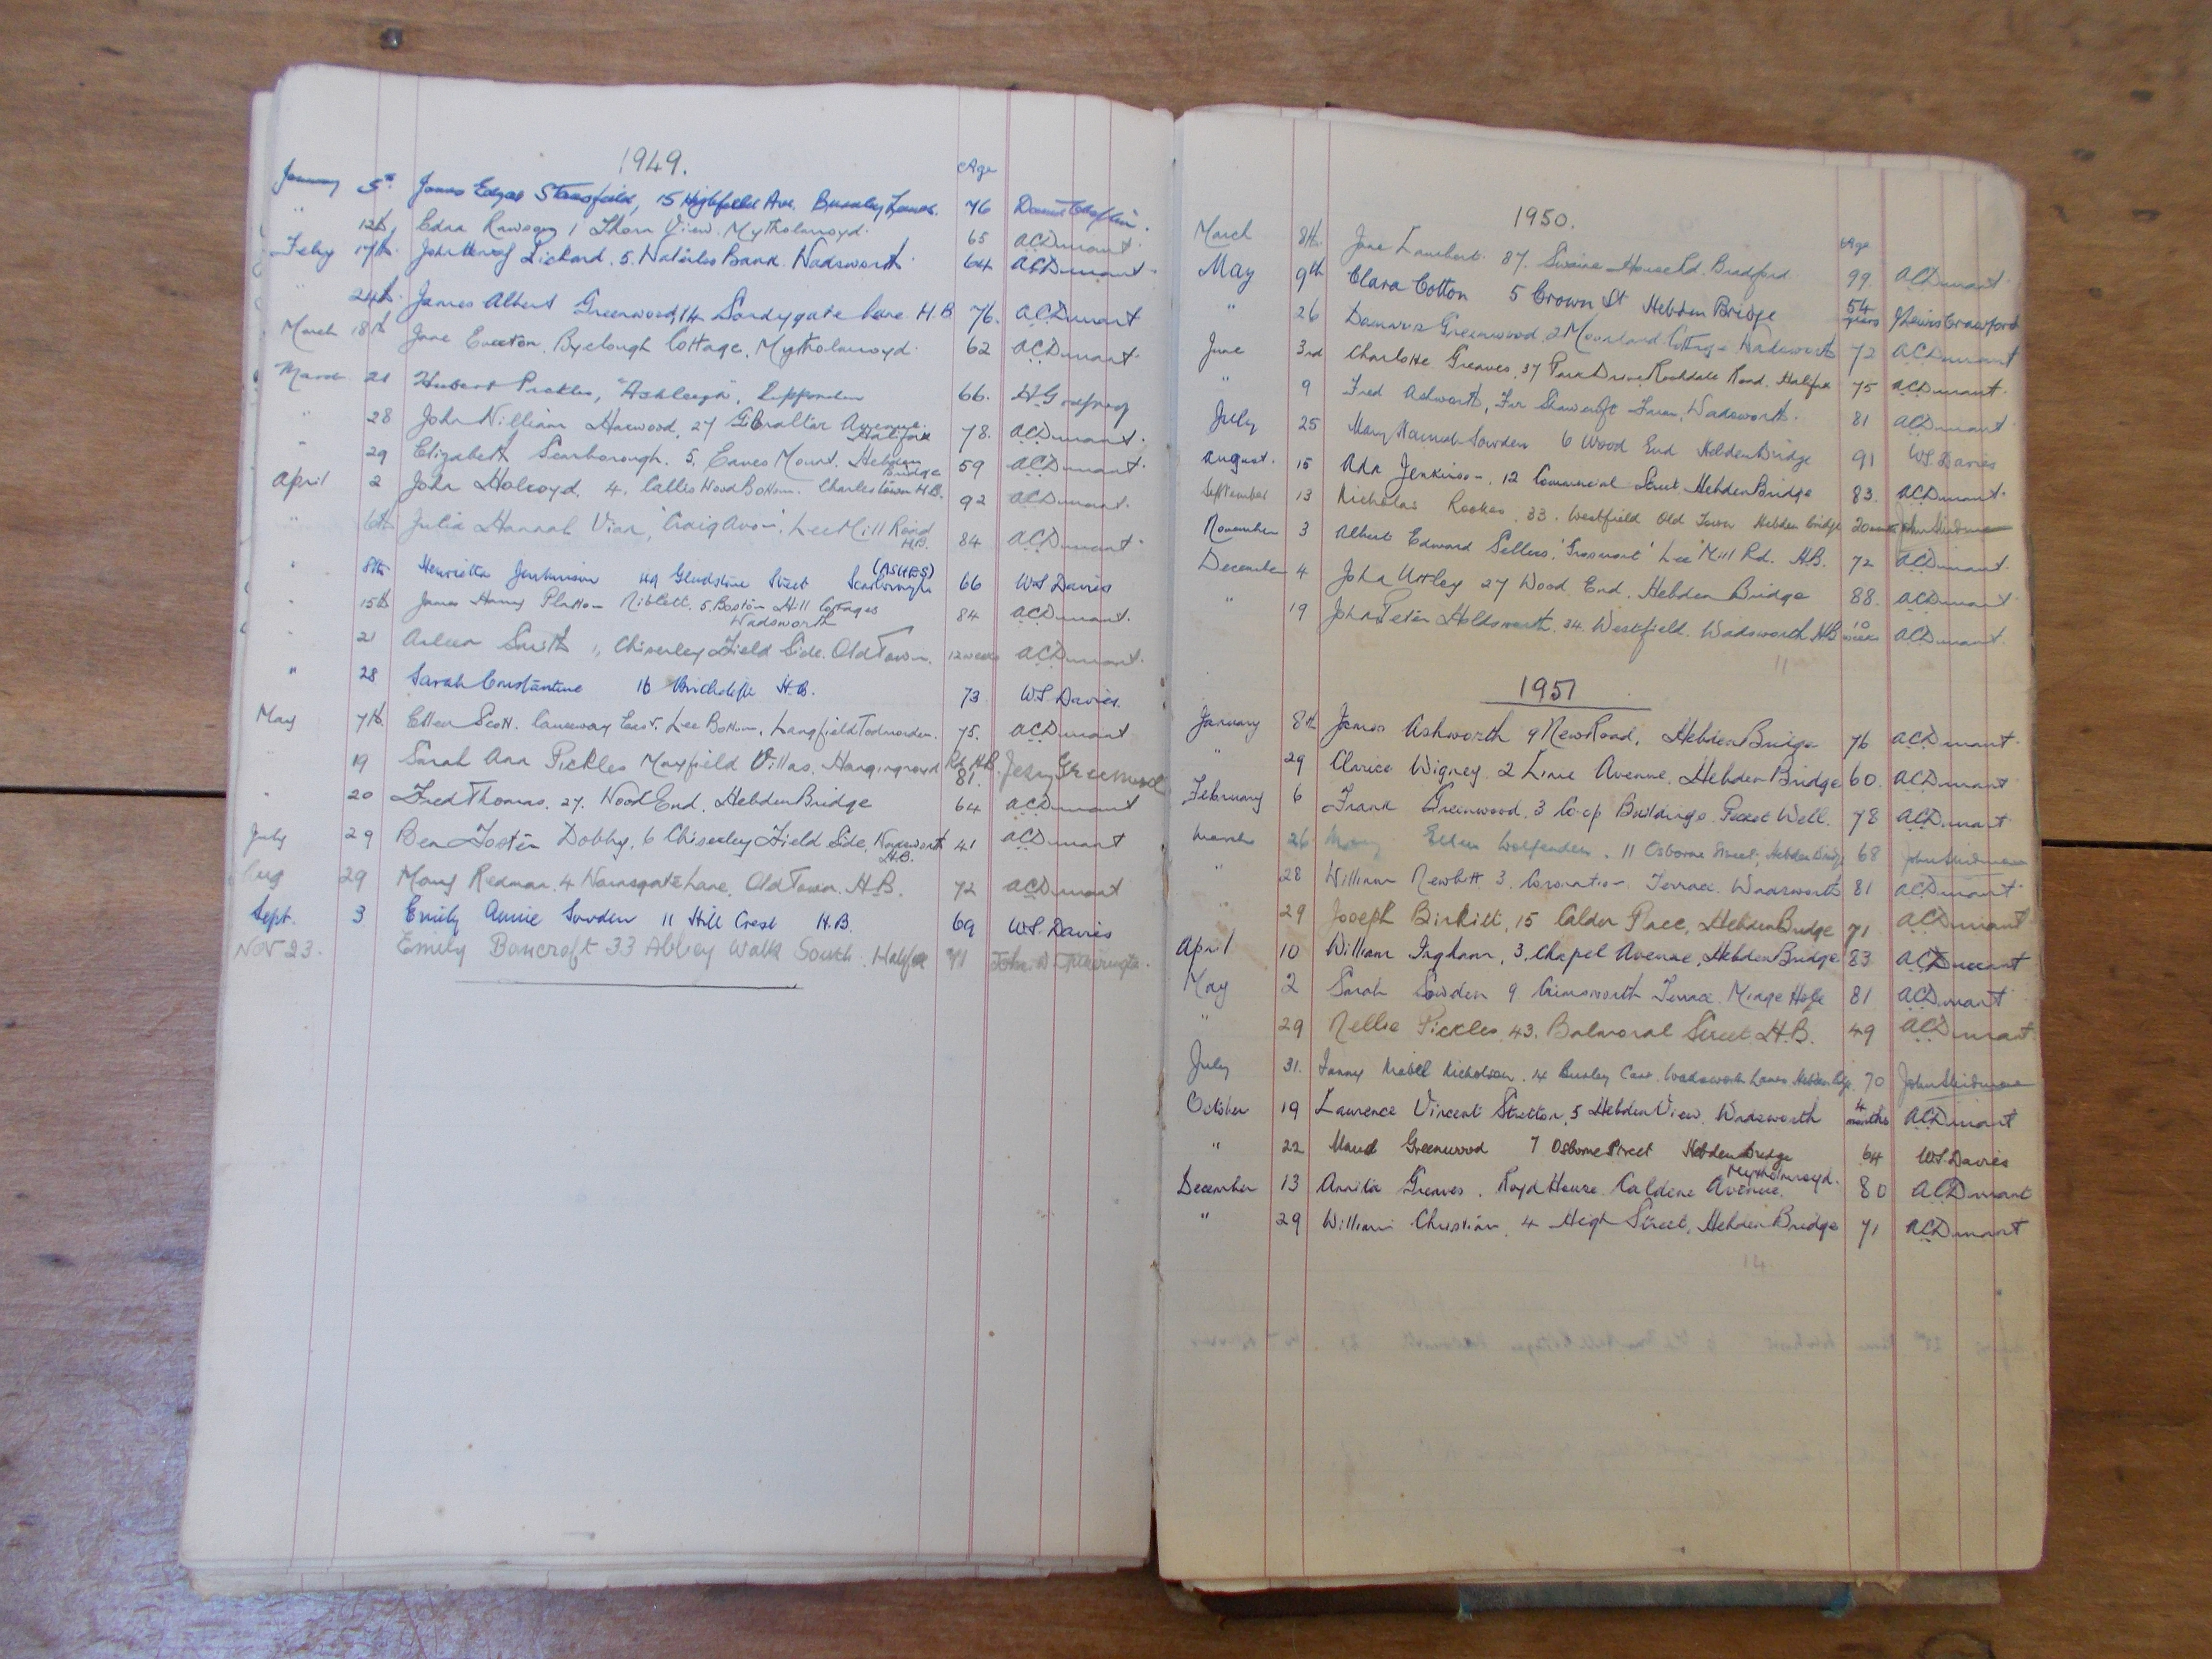 1949.
Age
January 5th James Edgar Stansfield, 15 Highfield Ave. Burnley Lancs. 76
" 12th Edna Rawson 1 Thorn View. Mytholmroyd. 65 ACDmant.
Feby 17th John Lickard. 5. Waterloo Bank. Wadsworth. 64 ACDmant.
" 24th. James Albert Greenwood, 14 Sandygate Lane. H.B 76. ACDmant
March 18th Jane Cottage, Mytholmroyd. 62 ACDmant.
March 21 Hubert Pickles, "Ashleigh", Ripponden 66.
" 28 John William Harwood, 27 Gibralter Avenue. Halifax 78. ACDmant.
" 29 Elizabeth Scarborough. 5. Eaves Mount. Hebden Bridge 59 ACDmant.
April 2 John Holroyd. 4. Callis Wood Bottom. Charlestown H.B. 92 ACDmant.
" 6th Julia Hannah 'Craig Avon'. Lee Mill Road H.B. 84 ACDmant.
(ASHES)
" 8th Henrietta Gladstone Street Scarborough 66 W.S. Davies
" 15th James Harry Niblett. 5. Boston Hill Cottages Wadsworth 84 ACDmant.
" 21 Smith 1, Chiserley Field Side. Old Town. 12 weeks ACDmant.
" 28 Sarah Constantine 16 Birchcliffe H.B. 73 W.S. Davies.
May 7th Ellen Scott. Causeway East. Lee Bottom, Langfield Todmorden. 75. ACDmant
" 19 Sarah Ann Pickles Mayfield Villas. Hangingroyd Rd H.B. 81.
" 20 Fred Thomas. 27. Wood End. Hebden Bridge 64 ACDmant
July 29 Ben Foster Dobby, 6 Chiserley Field Side, H.B. 41 ACDmant
Aug 29 Mary Redman. 4 Lane, Old Town. H.B. 72 ACDmant
Sept. 3 Emily Annie Sowden 11 Hill Crest H.B. 69 W.S. Davies
NOV 23. Emily Bancroft 33 Abbey Walk South. Halifax
1950.
Age
March 8th. Jane Lambert. 87. Swaine House Rd. Bradford. 99. ACDmant.
May 9th Clara Cotton 5 Crown St Hebden Bridge 54 years Crawford
" 26 Damaris Greenwood 2 Moorland Cottage Wadsworth 72 ACDmant
June 3rd Charlotte Greaves. 37 Park Drive Rochdale Road. Halifax 75 ACDmant.
" 9 Fred Ashworth, Farm, Wadsworth. 81 ACDmant
July 25 Mary Hannah Sowden 6 Wood End Hebden Bridge 91 W.S. Davies
August. 15 Ada Jenkinson. 12 Commercial Street. Hebden Bridge 83. ACDmant.
September 13 Nicholas Rookes. 33. Westfield Old Town Hebden Bridge
November 3 Albert Edward Sellers. 'Grosmont' Lee Mill Rd. H.B. 72 ACDmant.
December 4 John Uttley 27 Wood End. Hebden Bridge 88. ACDmant
" 19 John Peter Holdsworth. 34. Westfield. Wadsworth H.B 10 weeks ACDmant.
1951
January 8th James Ashworth 9 New Road, Hebden Bridge 76 ACDmant.
" 29 Clarice Wigney. 2 Lime Avenue. Hebden Bridge 60. ACDmant
February 6 Frank Greenwood. 3 Co-op Buildings. Pecket Well. 78 ACDmant
March 26 Mary Ellen Wolfenden. 11 Osborne Street, Hebden Bridge 68
" 28 William Newbitt 3. Coronation Terrace. Wadsworth 81 ACDmant.
" 29 Joseph Birkitt, 15 Calder Place, Hebden Bridge 71 ACDmant
April 10 William Ingham, 3, Chapel Avenue, Hebden Bridge 83 ACDmant
May 2 Sarah Sowden 9 Crimsworth Terrace. Midge Hole 81 ACDmant
" 29 Nellie Pickles 43. Balmoral Street. H.B. 49 ACDmant
July 31. Fanny Mabel Nicholson. 14 Wadsworth 70
October 19 Laurence Vincent Stretton, 5 Hebden View. Wadsworth 4 months ACDmant
" 22 Maud Greenwood 7 Osborne Street Hebden Bridge 64 W.S. Davies
December 13 Annita Greaves. Royd House. Caldene Avenue. Mytholmroyd. 80 ACDmant
" 29 William Christian. 4 High Street, Hebden Bridge 71 ACDmant